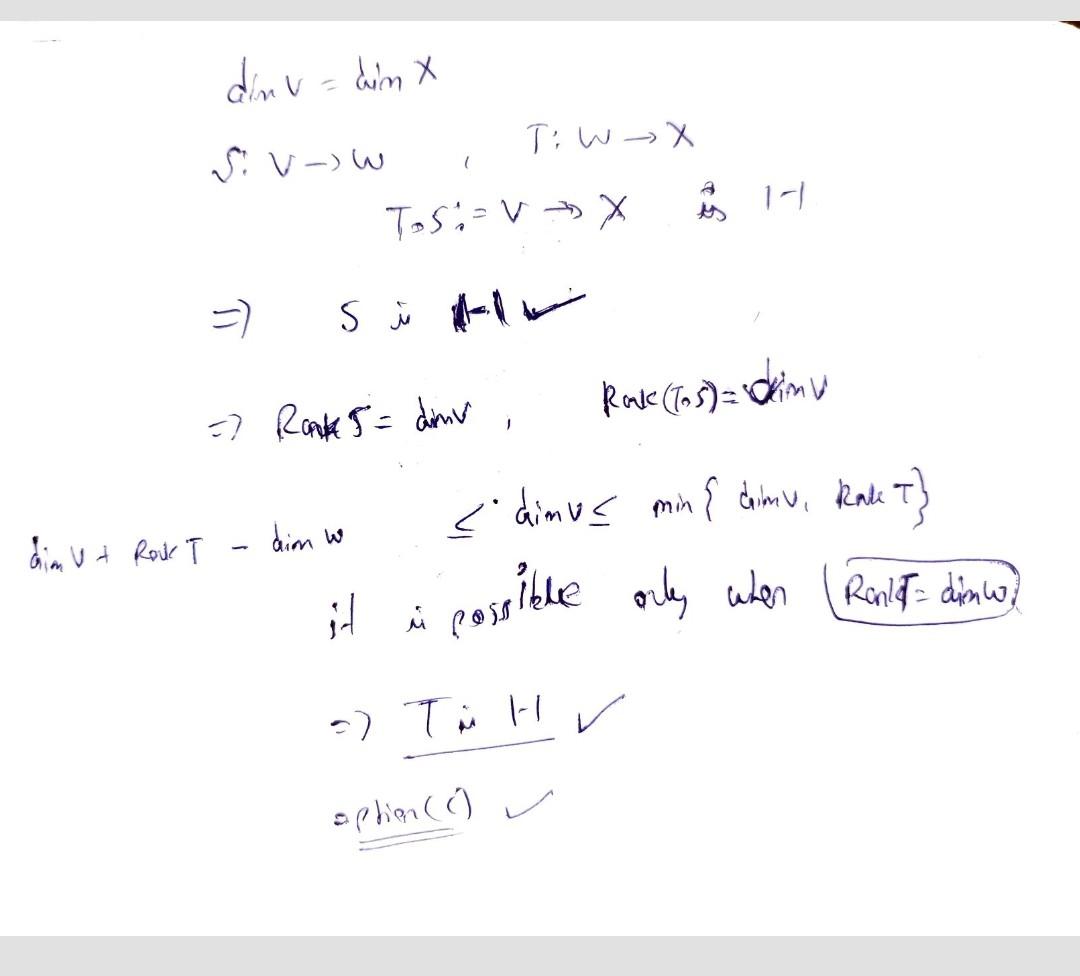 dim V = dim X
S: V → W , T: W → X
T∘S := V → X is 1-1
⇒ S is 1-1 ✓
⇒ Rank S = dim V , Rank (T∘S) = dim V
dim V + Rank T - dim W ≤ dim V ≤ min { dim V, Rank T}
it is possible only when Rank T = dim W.
⇒ T is 1-1 ✓
option (C) ✓